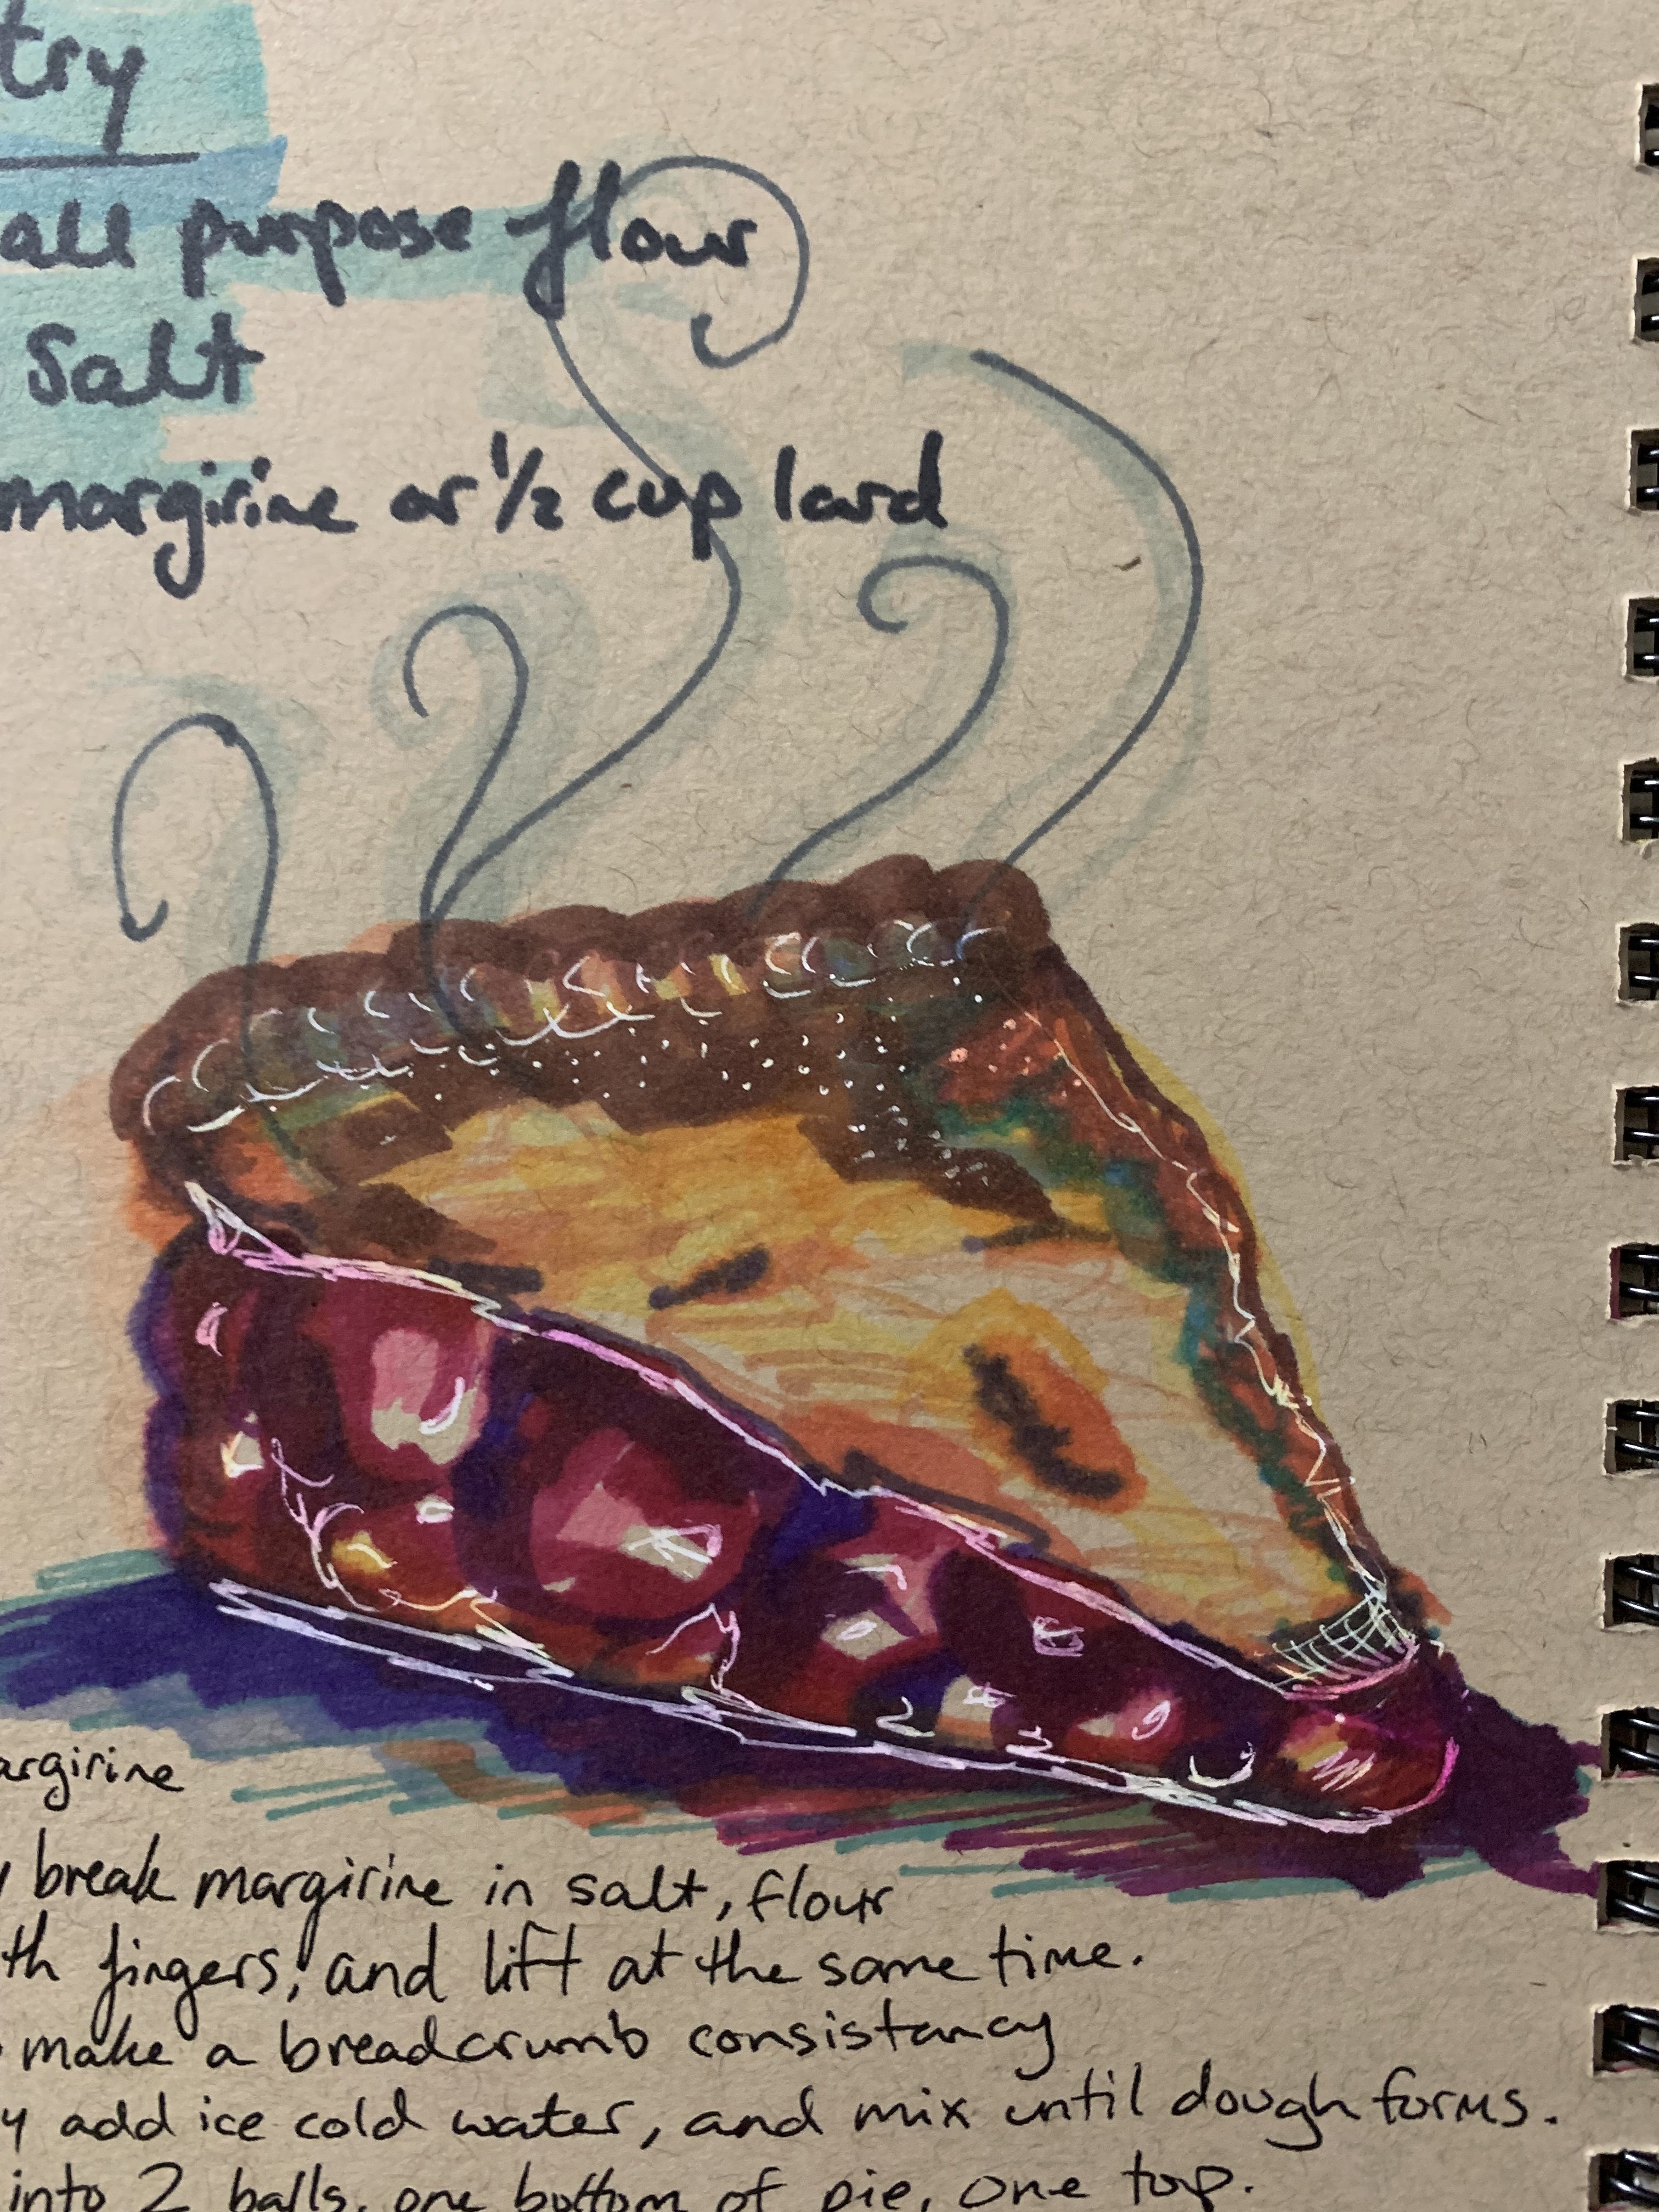 try
all purpose flour
Salt
margirine or 1/2 cup lard
argirine
break margirine in salt, flour
th fingers, and lift at the same time.
make a breadcrumb consistancy
y add ice cold water, and mix until dough forms.
into 2 balls, one bottom of pie, one top.